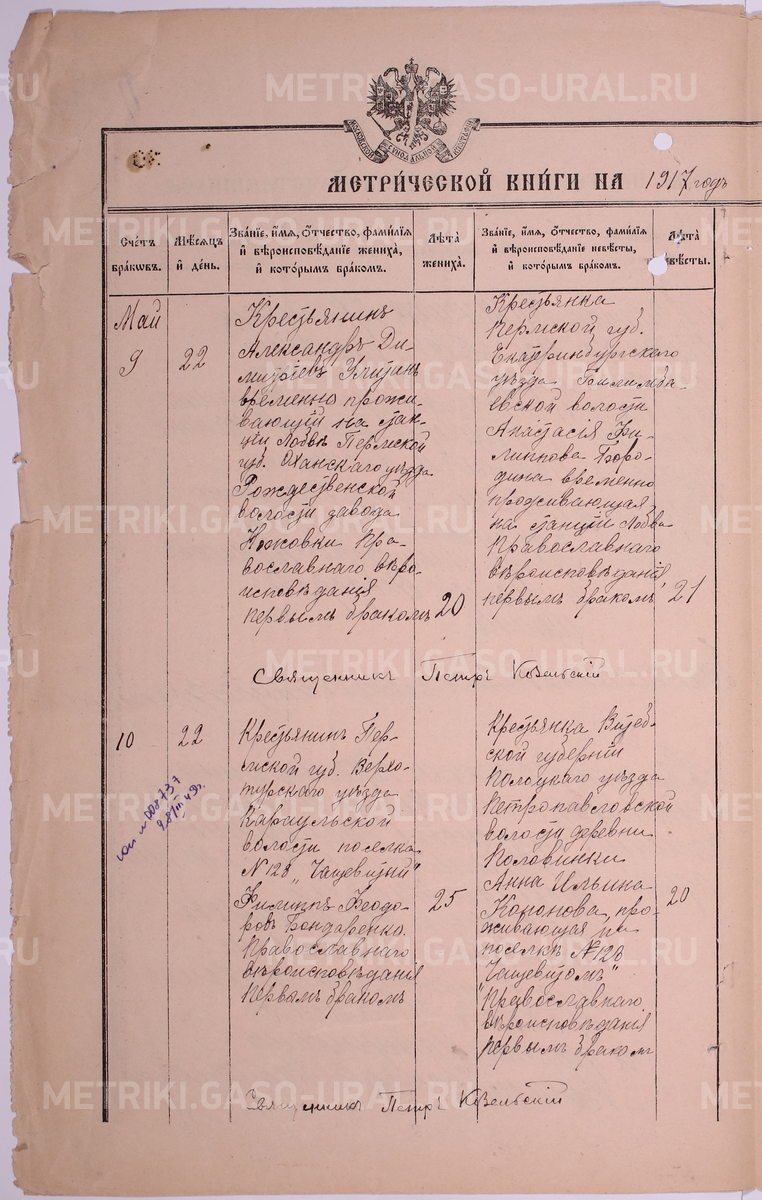 МОСКОВСКОЙ СѴНОДАЛЬНОЙ ТИПОГРАФІИ
МЕТРИ́ЧЕСКОЙ КНИ́ГИ НА 1917 годъ
Сче́тъ бра́ковъ.
Мѣ́сяцъ и҆ де́нь.
Зва́нїе, и҆́мѧ, ѻ҆́тчество, фами́лїѧ и҆ вѣроисповѣ́данїе жениха̀, и҆ кото́рымъ бра́комъ.
Лѣ́та жениха̀.
Зва́нїе, и҆́мѧ, ѻ҆́тчество, фами́лїѧ и҆ вѣроисповѣ́данїе невѣ́сты, и҆ кото́рымъ бра́комъ.
Лѣ́та невѣ́сты.
Май
9
22
Крестьянинъ
Александръ Ди-
митріевъ
временно прожи-
вающій на стан-
ціи Лобвѣ Пермской
губ. Оханскаго уѣзда
Рождественской
волости завода
Ножовки Пра-
вославнаго вѣро-
исповѣданія
первымъ бракомъ
20
Крестьянка
Пермской губ.
Екатеринбургскаго
уѣзда Билимба-
евской волости
Анастасія Фи-
липпова Боро-
дина временно
проживающая
на станціи Лобва
Православнаго
вѣроисповѣданія,
первымъ бракомъ
21
Священникъ Петръ Козельскій
10
22
Крестьянинъ Пер-
мской губ. Верхо-
турскаго уѣзда
Караульской
волости поселка
№ 128 „Чащевитый“
Филиппъ Ѳеодо-
ровъ Бондаренко.
Православнаго
вѣроисповѣданія
первымъ бракомъ
25
Крестьянка Витеб-
ской губерніи
Полоцкаго уѣзда
Петропавловской
волости деревни
Половинки
Анна Ильина
Кононова, про-
живающая на
поселкѣ № 128
„Чащевитомъ“
Православнаго
вѣроисповѣданія
первымъ бракомъ
20
Священникъ Петръ Козельскій
METRIKI.GASO-URAL.RU